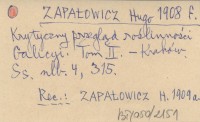 ZAPAŁOWICZ Hugo 1908 f.
Krytyczny przegląd roślinności
Galicyi. Tom II. – Kraków.
Ss. nlb. 4, 315.
Rec.: ZAPAŁOWICZ H. 1909a